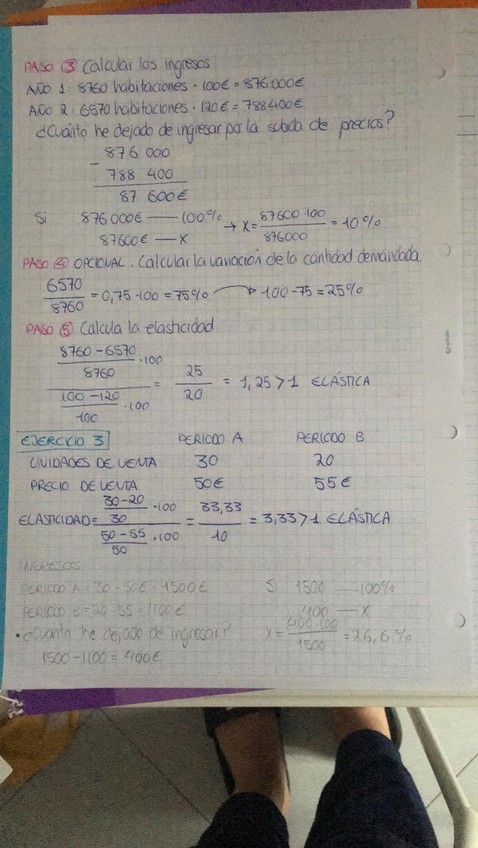 PASO ③ Calcular los ingresos
AÑO 1: 8760 habitaciones · 100€ = 876000€
AÑO 2: 6570 habitaciones · 120€ = 788400€
¿Cuánto he dejado de ingresar por la subida de precios?
876 000
- 788 400
87 600€
Si 876000€ — 100%
87600€ — X
→ X = 87600·100 / 876000 = 10%
PASO ④ OPCIONAL. Calcular la variación de la cantidad demandada
6570 / 8760 = 0,75·100 = 75% → 100-75 = 25%
PASO ⑤ Calcula la elasticidad
8760-6570 / 8760 · 100
100-120 / 100 · 100
= 25 / 20 = 1,25 > 1 ELÁSTICA
EJERCICIO 3 PERIODO A PERIODO B
UNIDADES DE VENTA 30 20
PRECIO DE VENTA 50€ 55€
ELASTICIDAD = 30-20 / 30 · 100
50-55 / 50 · 100
= 33,33 / 10 = 3,33 > 1 ELÁSTICA
INGRESOS
PERIODO A = 30 · 50€ = 1500€
PERIODO B = 20 · 55 = 1100€
• ¿Cuánto he dejado de ingresar?
1500 - 1100 = 400€
Si 1500 — 100%
400 — X
X = 400·100 / 1500 = 26,6%